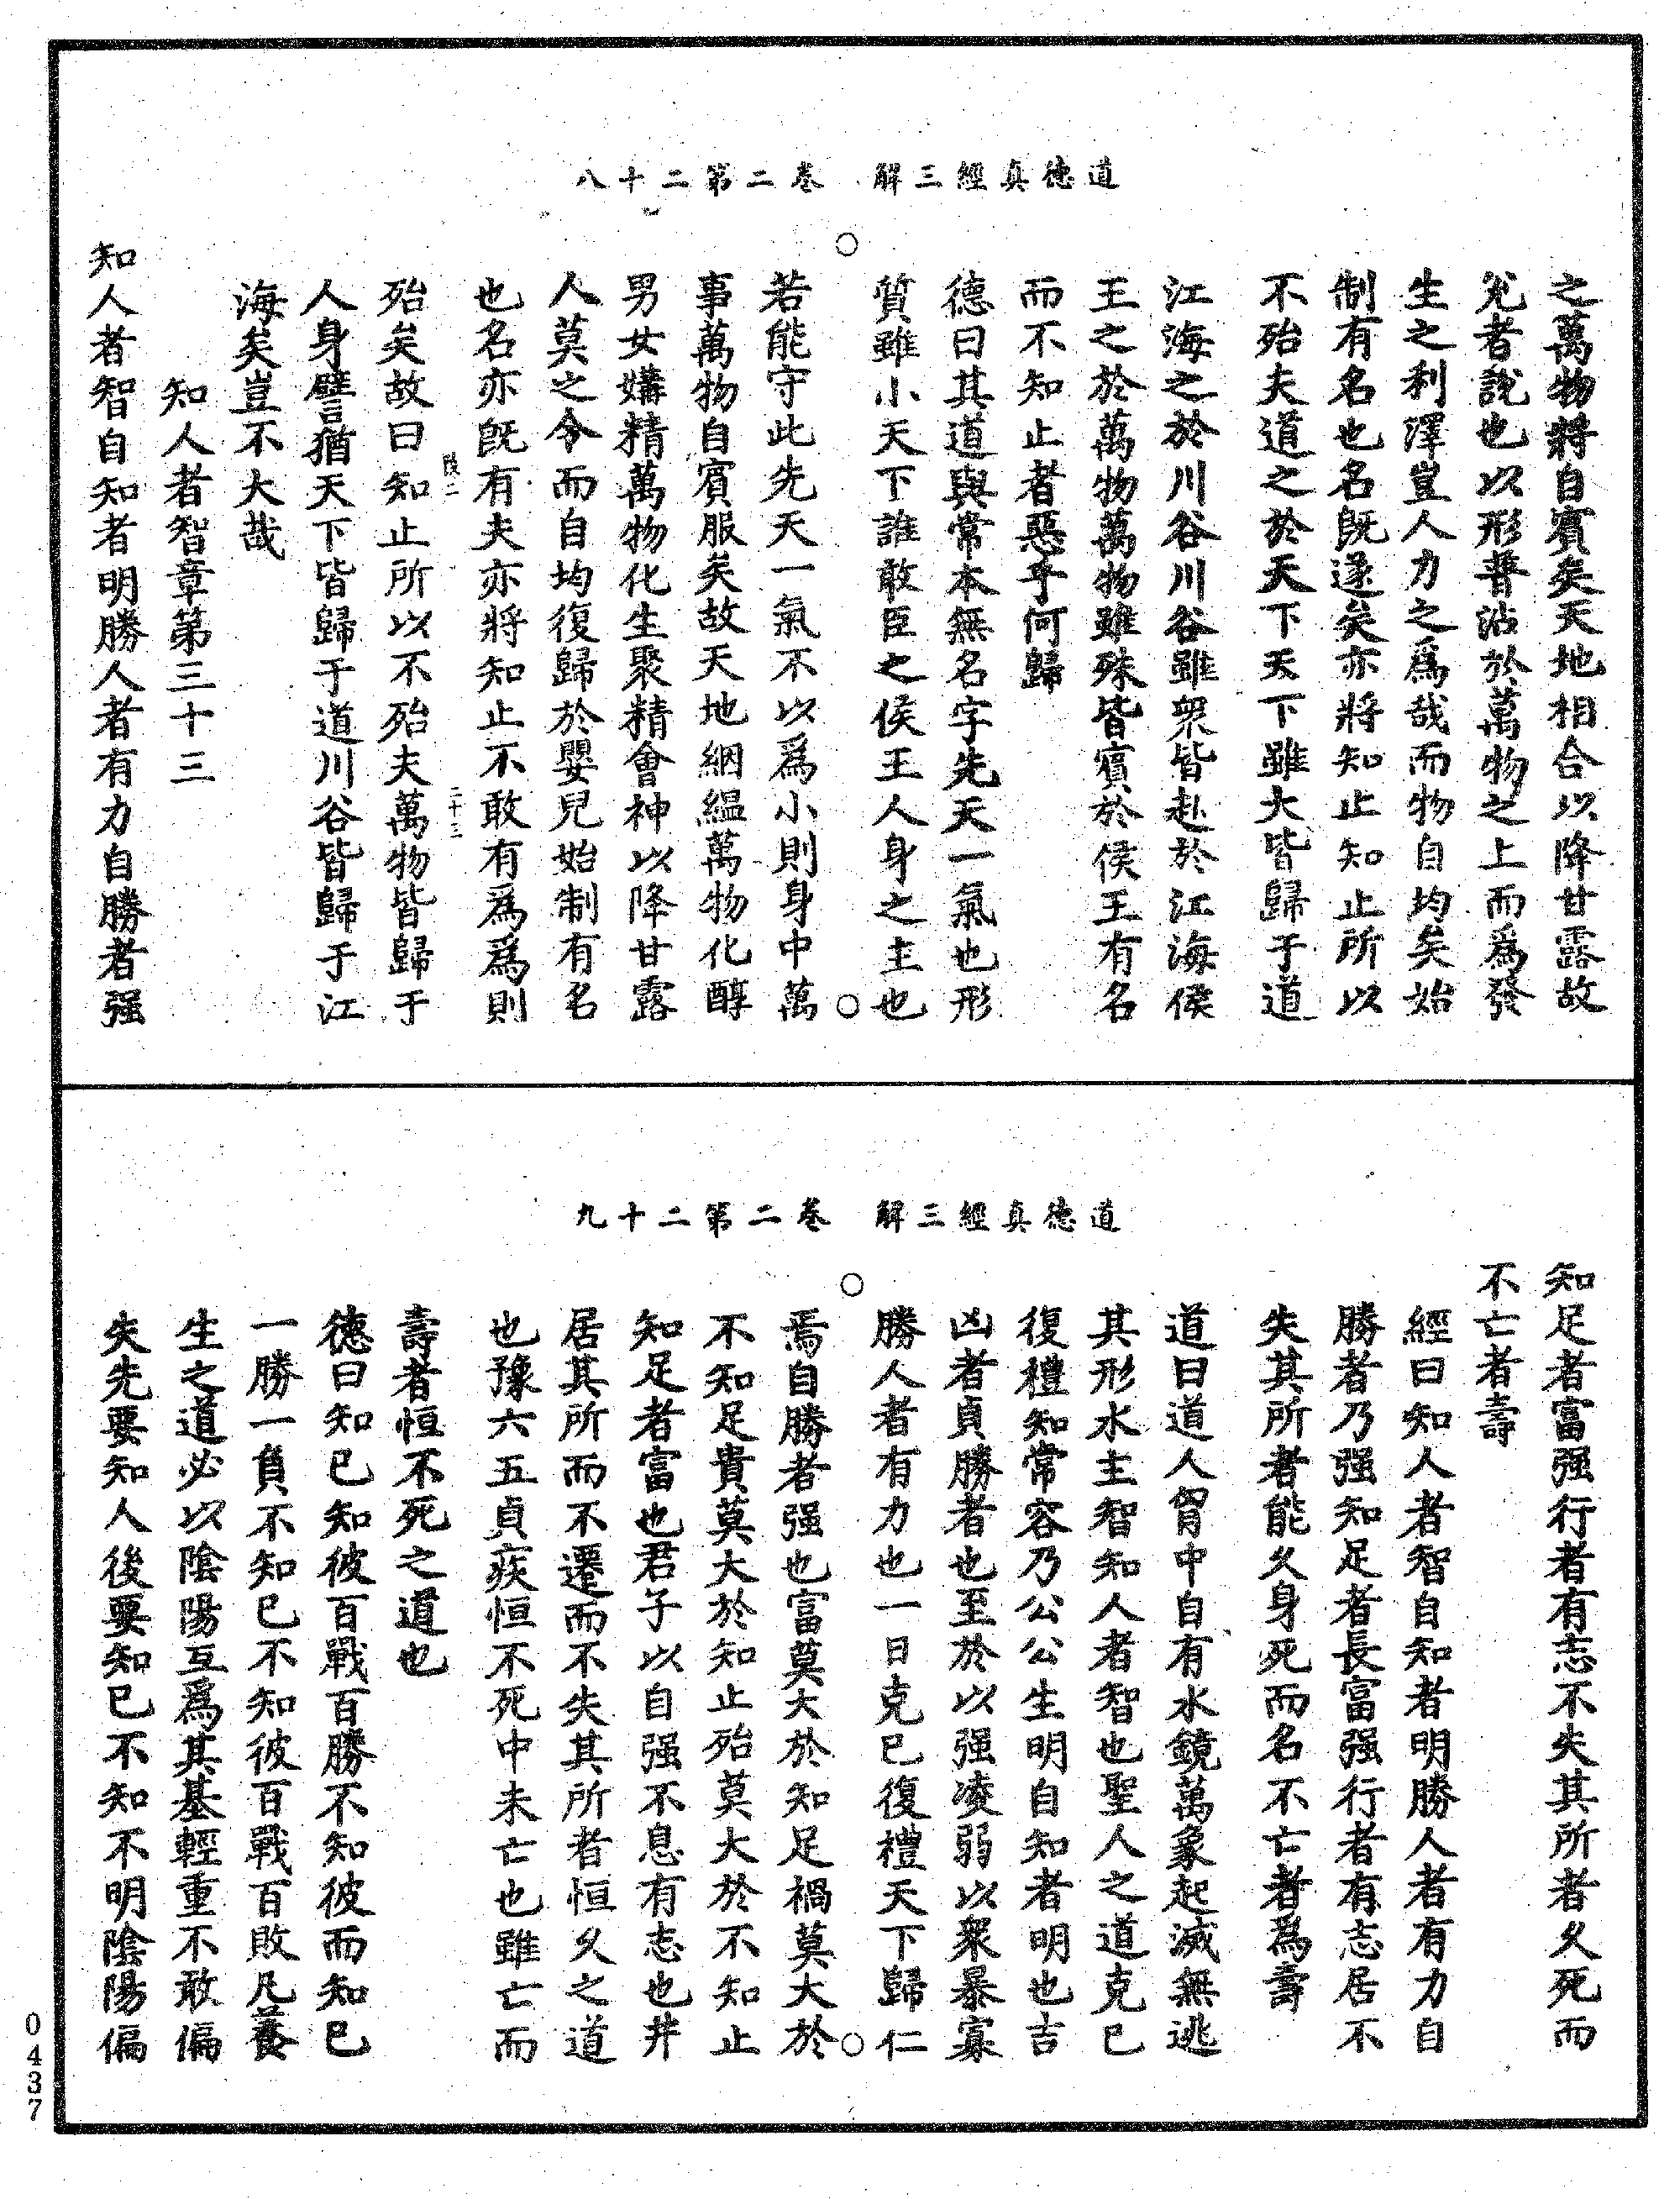 道德真經三解　卷二第二十八
之萬物將自賓矣天地相合以降甘露故
兊者說也以形普沾於萬物之上而為發
生之利澤豈人力之為哉而物自均矣始
制有名也名旣遂矣亦將知止知止所以
不殆夫道之於天下天下雖大皆歸于道
江海之於川谷川谷雖衆皆赴於江海侯
王之於萬物萬物雖殊皆賓於侯王有名
而不知止者惡乎何歸
德曰其道與常本無名字先天一氣也形
質雖小天下誰敢臣之侯王人身之主也
若能守此先天一氣不以爲小則身中萬
事萬物自賓服矣故天地絪縕萬物化醇
男女媾精萬物化生聚精會神以降甘露
人莫之令而自均復歸於嬰兒始制有名
也名亦旣有夫亦將知止不敢有爲爲則
二十三
殆矣故曰知止所以不殆夫萬物皆歸于
人身譬猶天下皆歸于道川谷皆歸于江
海矣豈不大哉
知人者智章第三十三
知人者智自知者明勝人者有力自勝者强
道德真經三解　卷二第二十九
知足者富强行者有志不失其所者久死而
不亡者壽
經曰知人者智自知者明勝人者有力自
勝者乃强知足者長富强行者有志居不
失其所者能久身死而名不亡者為壽
道曰道人胷中自有水鏡萬象起滅無逃
其形水主智知人者智也聖人之道克己
復禮知常容乃公公生明自知者明也吉
凶者貞勝者也至於以强凌弱以衆暴寡
勝人者有力也一日克己復禮天下歸仁
焉自勝者强也富莫大於知足禍莫大於
不知足貴莫大於知止殆莫大於不知止
知足者富也君子以自强不息有志也井
居其所而不遷而不失其所者恒久之道
也豫六五貞疾恒不死中未亡也雖亡而
壽者恒不死之道也
德曰知己知彼百戰百勝不知彼而知己
一勝一負不知己不知彼百戰百敗凡養
生之道必以陰陽互爲其基輕重不敢偏
失先要知人後要知己不知不明陰陽偏
0437